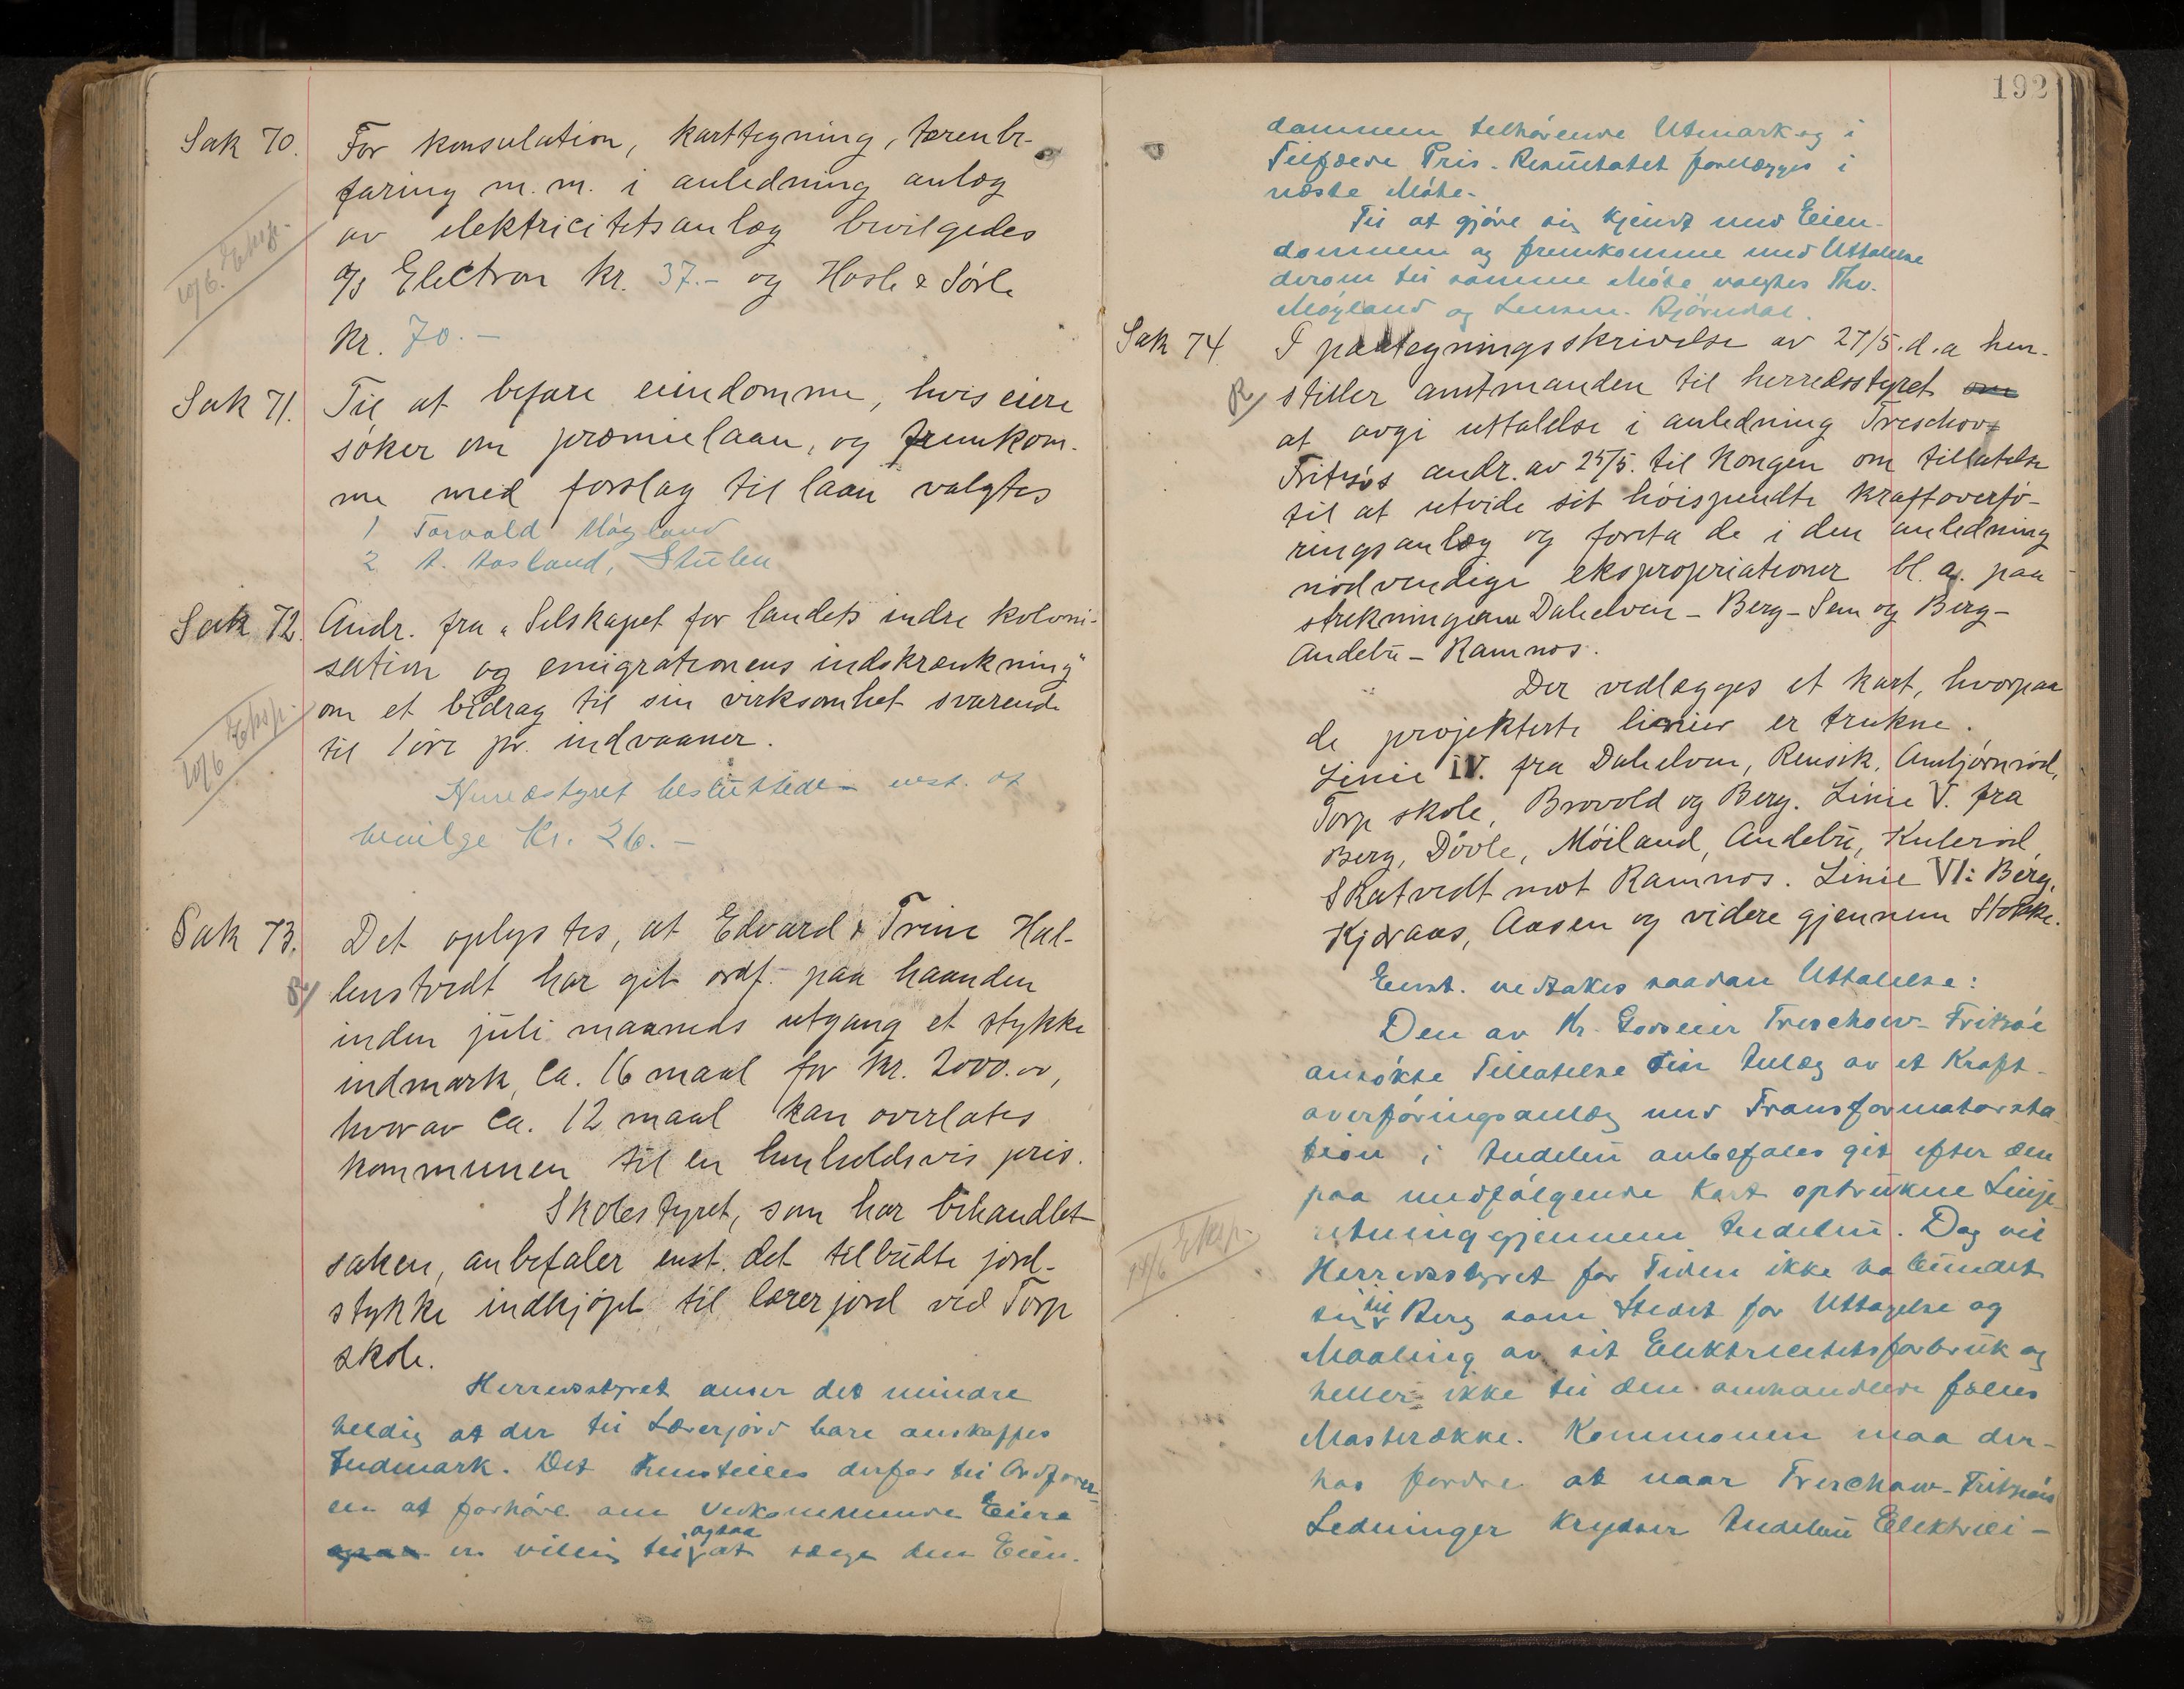 Sak 70. For konsulation, karttegning, terenbe-
faring m.m. i anledning anlæg
av elektricitetsanlæg bevilgedes
a/s Electron kr. 37.- og Hasle & Sørle
kr. 70.-
10/6. Eksp.
Sak 71. Til at befare eiendomme, hvis eiere
søker om præmielaan, og fremkom-
me med forslag til laan valgtes
1 Torvald Møyland
2 A. Aasland, Stulen
Sak 72. Andr. fra "Selskapet for landets indre koloni-
sation og emigrationens indskrænkning"
om et bidrag til sin virksomhet svarende
til 1 øre pr. indvaaner.
10/6 Eksp.
Herredstyret besluttede enst. at
bevilge Kr. 26.-
Sak 73. Det oplystes, at Edvard & Trine Hal-
lenstvedt har git ordf. paa haanden
inden juli maaneds utgang et stykke
indmark, ca. 16 maal for kr. 2000.00,
hvorav ca. 12 maal kan overlates
kommunen til en henholdsvis pris.
Skolestyret, som har behandlet
saken, anbefaler enst. det tilbudte jord-
stykke indkjøpt til lærerjord ved Torp
skole.
Herredsstyret anser det mindre
heldig at der til Lærerjord bare anskaffes
Indmark. Det henstilles derfor til Ordfører-
en at forhøre om Vedkommende Eiere
ogsaa er villig til ogsaa at sælge den Eien-
192
dommen tilhørende Utmark og i
Tilfælde Pris. Resultatet forelægges i
næste Møte.
Til at gjøre sig kjendt med Eien-
dommen og fremkomme med Uttalelse
derom til samme Møte valgtes Thv.
Møyland og Lensm. Bjørndal.
Sak 74 I paategningsskrivelse av 27/5. d.a hen-
R/ stiller amtmanden til herredsstyret om
at avgi uttalelse i anledning Treschow
Fritzøs andr. av 25/5. til Kongen om tillatelse
til at utvide sit høispendte kraftoverfø-
ringsanlæg og foreta de i den anledning
nødvendige ekspropriationer bl.a. paa
strekningene Dalelven - Berg - Sem og Berg -
Andebu - Ramnes.
Der vedlægges et kart, hvorpaa
de projekterte linier er trukne.
Linie IV. fra Dalelven, Rensik, Anbjørnrød,
Torp skole, Brovold og Berg. Linie V. fra
Berg, Døvle, Møiland, Andebu, Kulerød,
Skatvedt mot Ramnes. Linie VI: Berg,
Kjøraas, Aasen og videre gjennem Stokke.
Enst. vedtakes saadan Uttalelse:
Den av Hr. Godseier Treschow-Fritzøe
ansøkte Tillatelse til Anlæg av et Kraft-
overføringsanlæg med Transformatorsta-
tion i Andebu anbefales git efter den
paa medfølgende Kart optrukne Linje-
retning gjennem Andebu. Dog vil
14/6 Eksp.
Herredsstyret for Tiden ikke ha bundet
sig til Berg som Stedet for Uttagelse og
Maaling av sit Elektricitetsforbruk og
heller ikke til den omhandlede fælles
Masterække. Kommunen maa der-
hos fordre at naar Treschow-Fritzøes
Ledninger krydser Andebu Elektrici-